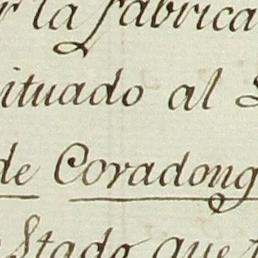 la fabrica
situado al
de Coradong
Stado que